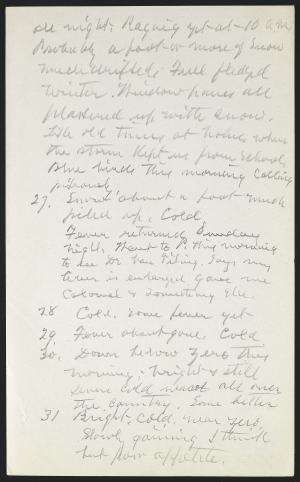 all night. Raging yet at 10 a.m.
Probably a foot or more of snow
much drifted; Full fledged
winter. Window panes all
plastered up with snow.
Like old times at home when
the storm kept us from school,
Blue birds this morning calling
27. Snow about a foot much
piled up. Cold.
Fever returned Sunday
night. Went to P. this morning
to see Dr. Van Tiling. Says my
liver is enlarged gave me
Calomel & something else.
28 Cold, some fever yet
29 Fever about gone. Cold
30. Down below zero this
morning; bright & still
Severe cold all over
the country. Some better
31 Bright, cold, near zero,
Slowly gaining I think
but poor appetite.